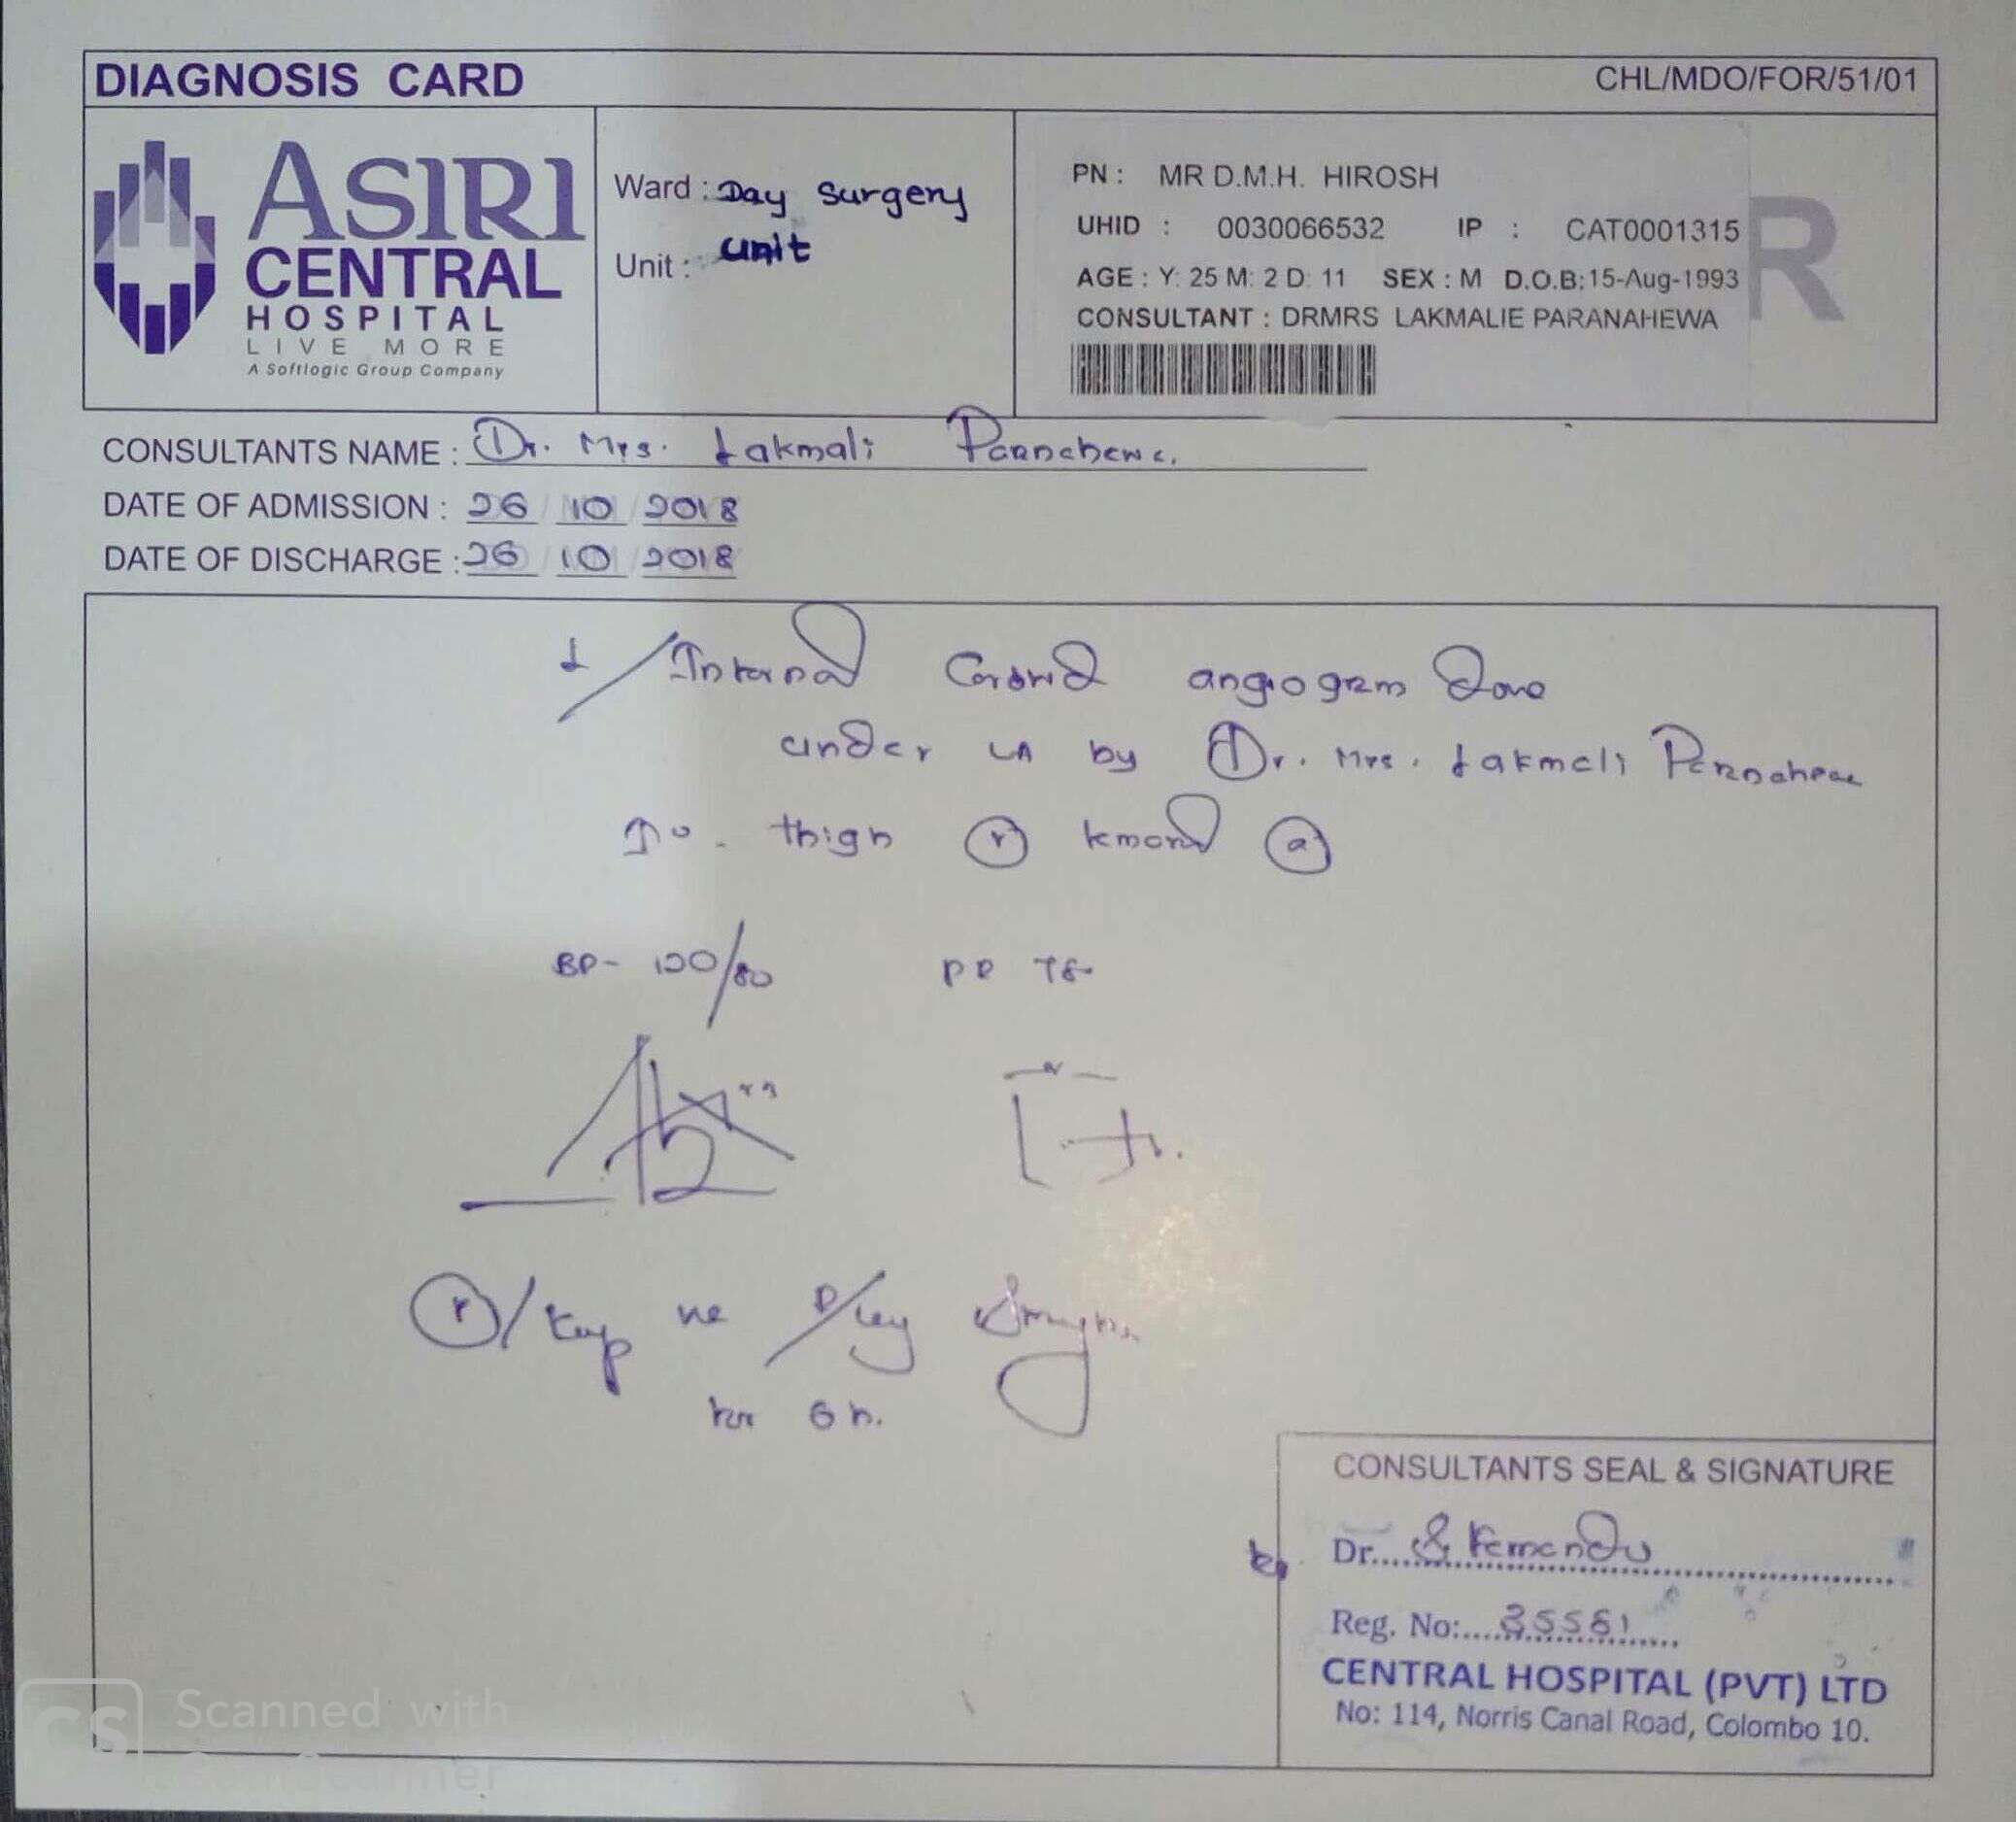 DIAGNOSIS CARD
CHL/MDO/FOR/51/01
ASIRI
CENTRAL
HOSPITAL
LIVE MORE
A Softlogic Group Company
Ward : Day Surgery
Unit : unit
PN : MR D.M.H. HIROSH
UHID : 0030066532 IP : CAT0001315
AGE : Y: 25 M: 2 D: 11 SEX : M D.O.B: 15-Aug-1993
CONSULTANT : DRMRS LAKMALIE PARANAHEWA
R
CONSULTANTS NAME : Dr. Mrs. Lakmali
DATE OF ADMISSION : 26 10 2018
DATE OF DISCHARGE : 26 10 2018
Internal angiogram Done
under LA by Dr. Mrs. Lakmali
thigh
BP- 120/80 PR 78
for 6 h.
CONSULTANTS SEAL & SIGNATURE
Dr. Fernando
Reg. No:
CENTRAL HOSPITAL (PVT) LTD
No: 114, Norris Canal Road, Colombo 10.
CS Scanned with